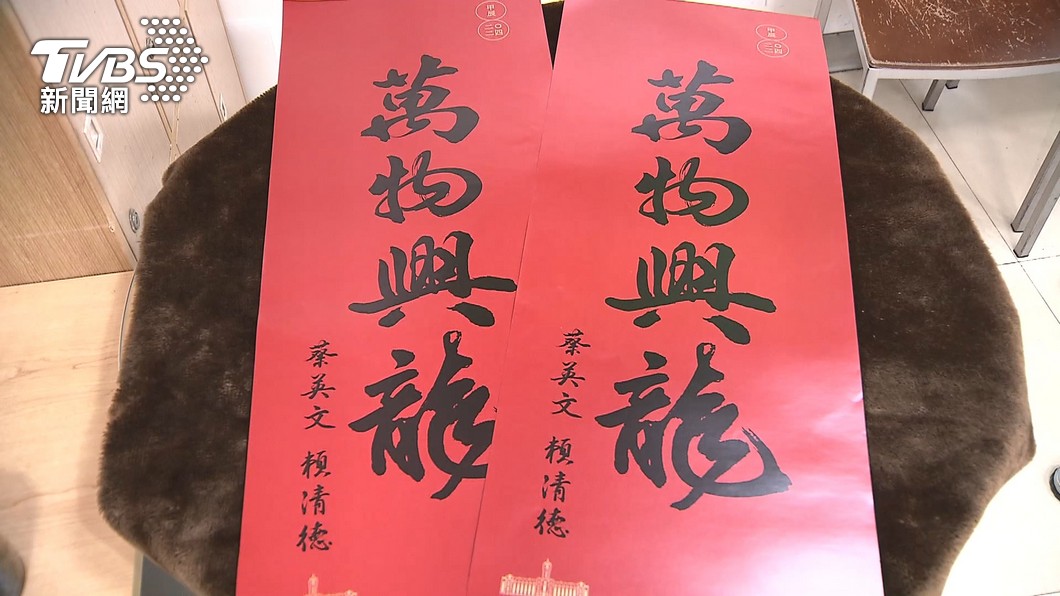 TVBS
新聞網
甲辰
二〇二四
萬物興龍
蔡英文 賴清德
甲辰
二〇二四
萬物興龍
蔡英文 賴清德